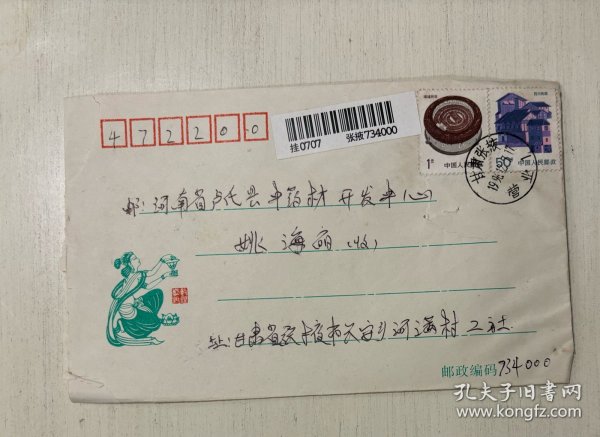 472200
挂0707 张掖734000
福建民居
1元
中国人民邮政
四川民居
中国人民邮政
甘肃张掖
邮:河南省卢氏县中药材开发中心
姚海丽(收)
址:甘肃省张掖市大安乡河满村二社
邮政编码734000
孔夫子旧书网
www.kongfz.com